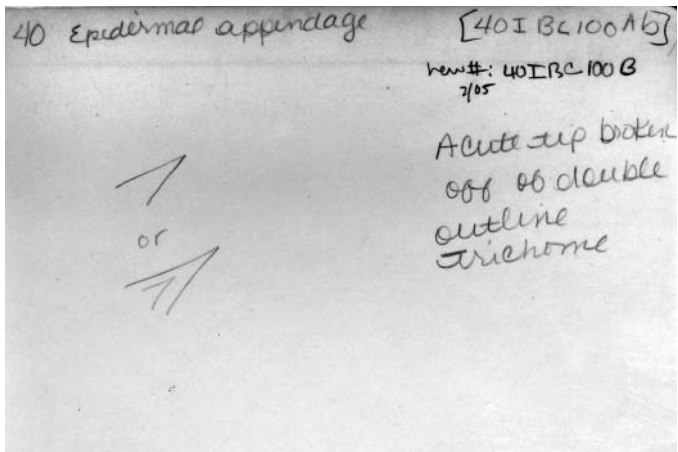 40 Epidermal appendage [40IBC100Ab]
new#: 40IBC100B
2/05
Acute tip broken
off of double
outline
trichome
or